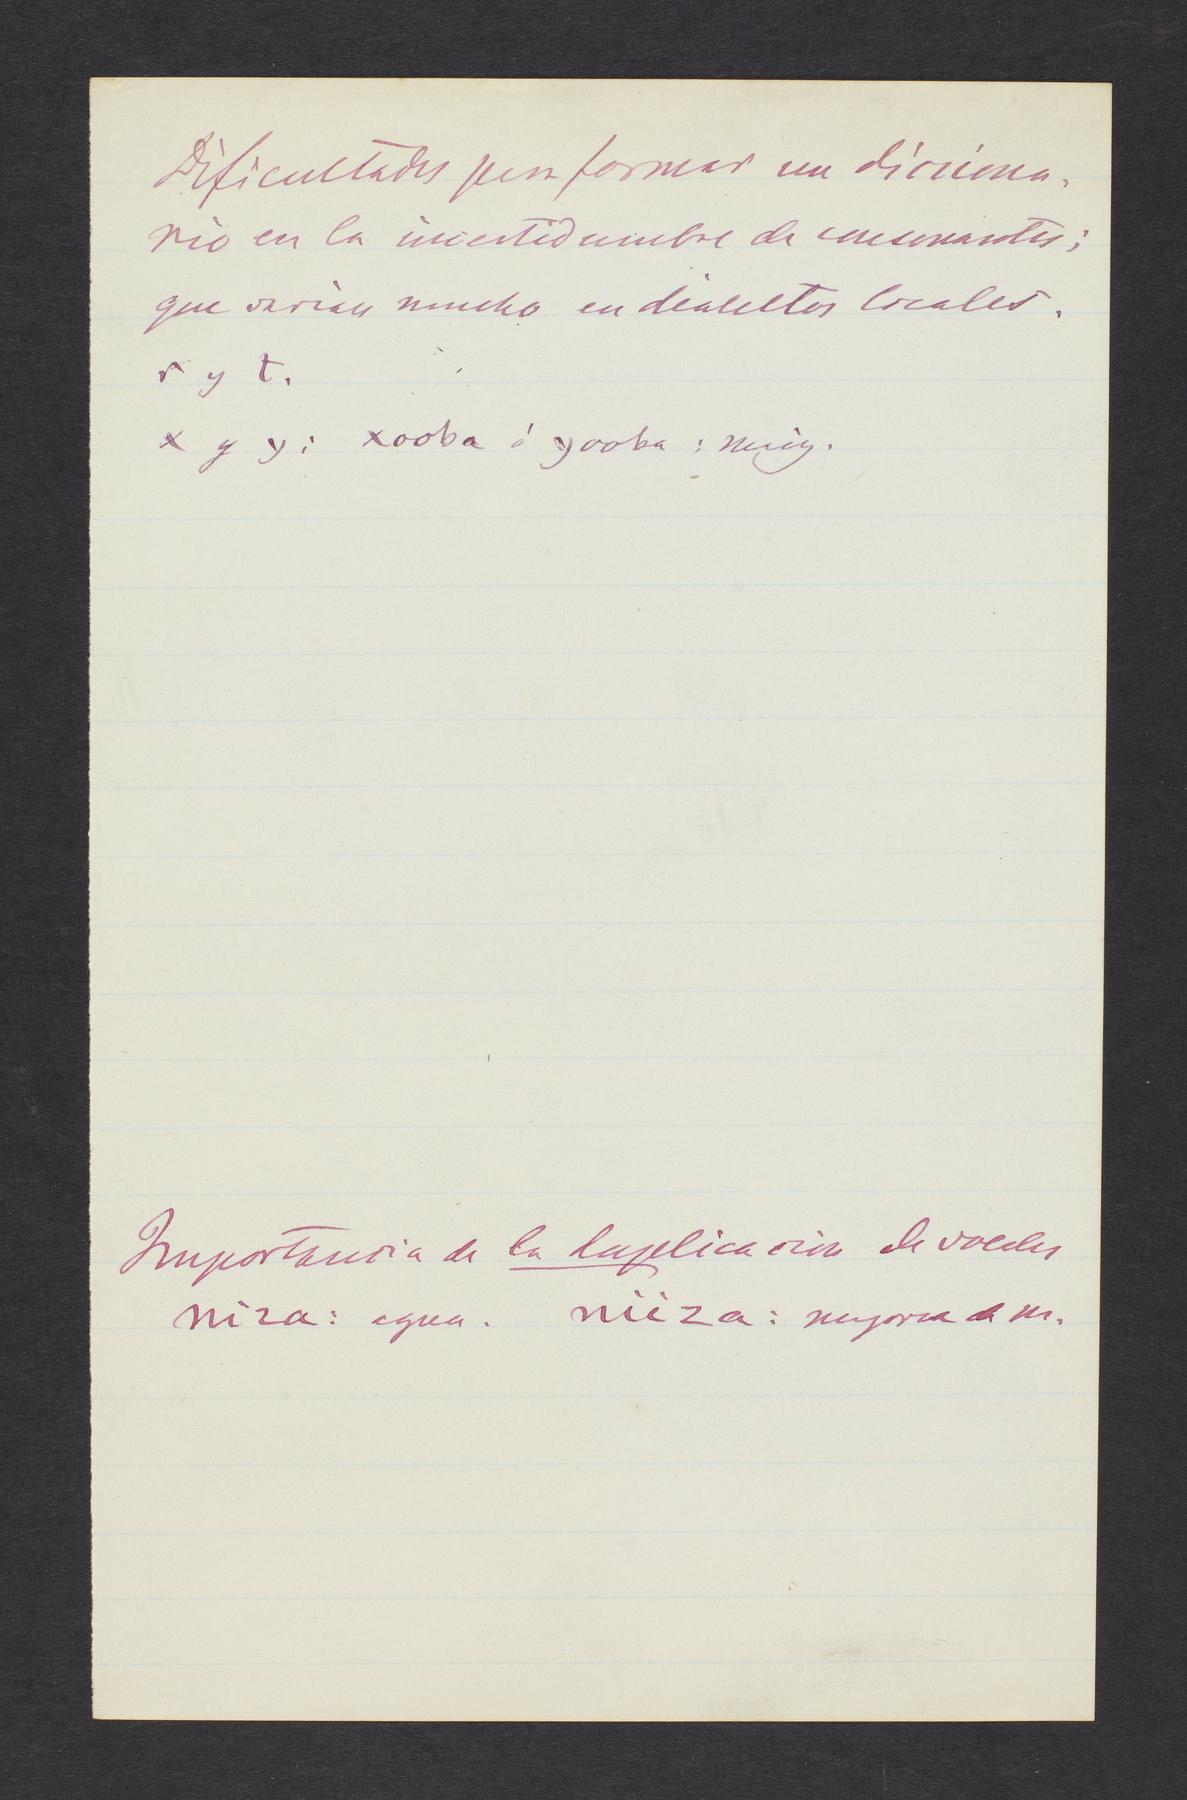 Dificultades para formar un dicciona-
rio en la incertidumbre de consonantes;
que varian mucho en dialectos locales.
r y t.
x y y: xooba ó yooba: maiz.
Importancia de la duplicacion de vocales
niza: agua. niiza: mazorca de m.